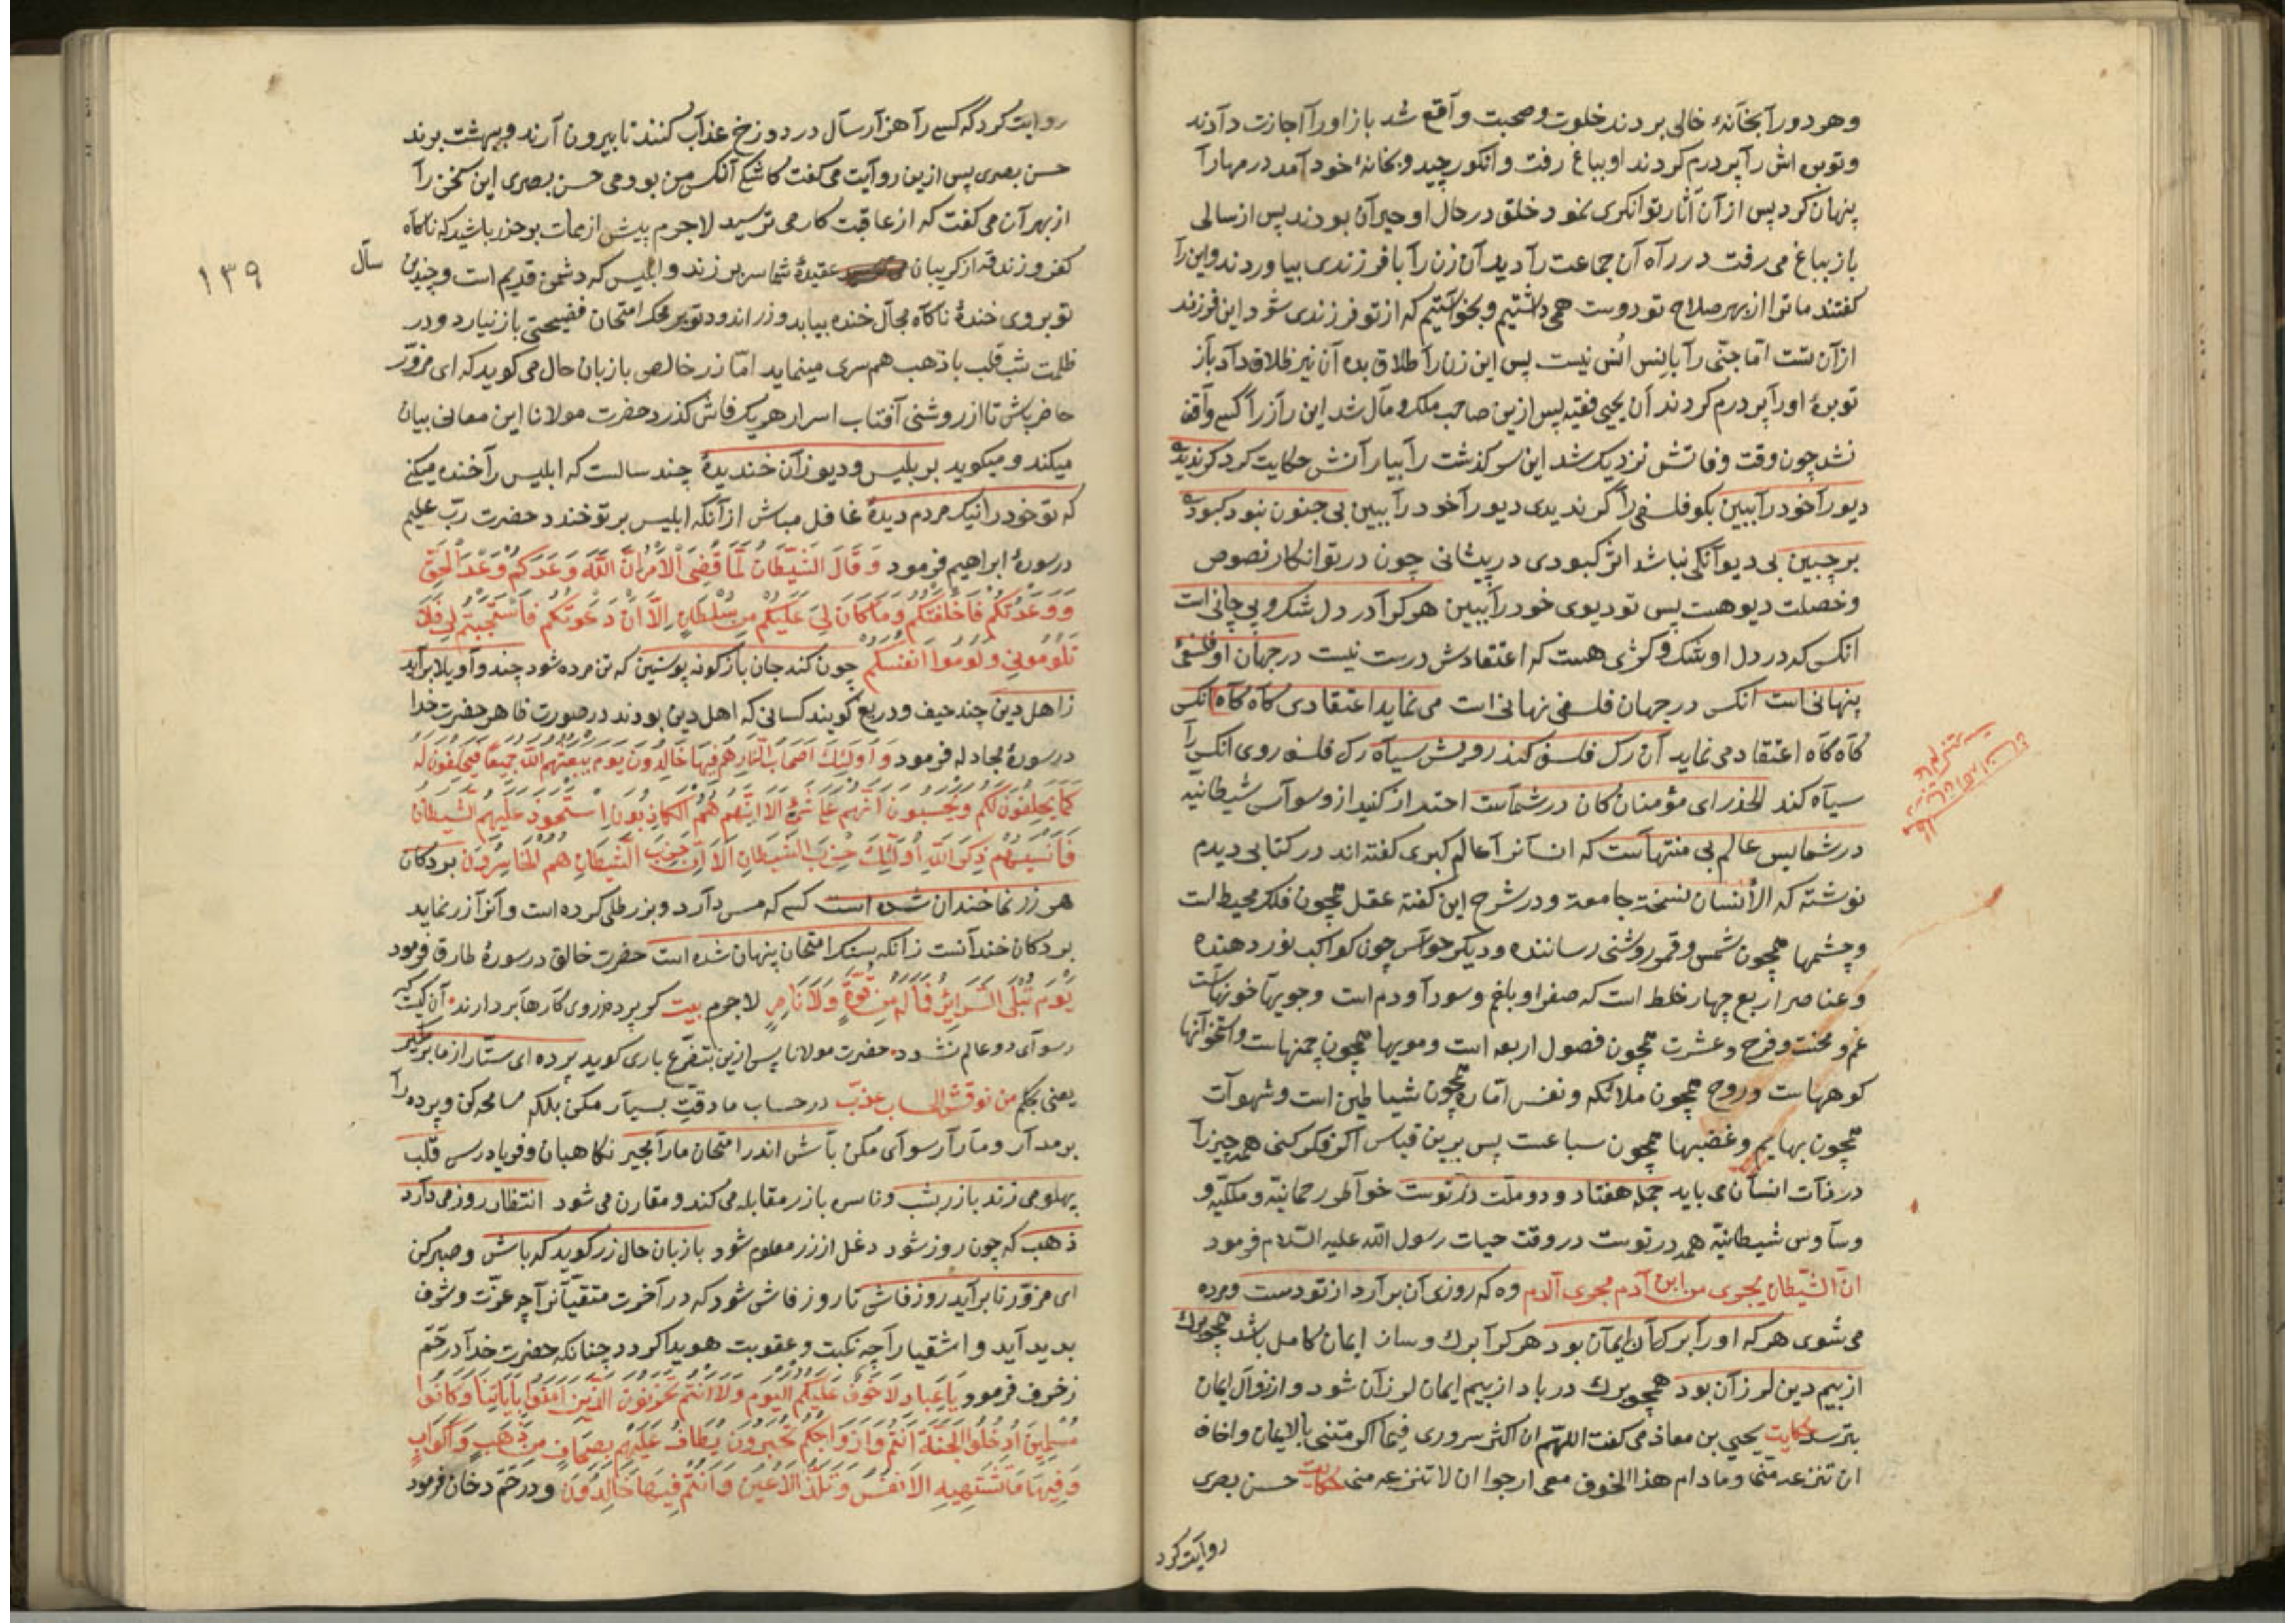 وهر دو را بخانهٔ خالی بردند خلوت وصحبت واقع شد باز اورا اجازت دادند
وتوبره اش را پر درم کردند او بباغ رفت وانکور چید وبخانهٔ خود آمد درمهارا
پنهان کرد پس از آن آثار توانکری نمود خلق در حال او حیران بودند پس از سالی
باز بباغ می رفت در راه آن جماعت را دید آن زن را با فرزندی بیاوردند واین را
کفتند ما ترا از بهر صلاح تو دوست همی داشتیم وبخواستیم که از تو فرزندی شود این فرزند
از آن تست اما جنی را با انس انس نیست پس این زن را طلاق بده آن نیز طلاق داد باز
توبرهٔ اورا پر درم کردند آن یحیی فقیه پس ازین صاحب ملک ومال شد این راز را کسی واقف
نشد چون وقت وفاتش نزدیک شد این سرکذشت را بیارانش حکایت کرد کر ندیدهٔ
دیورا خود را ببین بکو فلسفی را کر ندیدی دیورا خود را ببین بی جنون نبود کبودی
بر جبین بی دیوانکی نباشد اثر کبودی در پیشانی چون در تو انکار نصوص
وخصلت دیو هست پس تو دیوی خود را ببین هر کرا در دل شک وپیچانی است
انکس که در دل او شک وکژی هست که اعتقادش درست نیست در جهان او فلسفی
پنهانی است انکس در جهان فلسفی نهانی است می نماید اعتقادی کاه کاه انکس
کاه کاه اعتقاد می نماید آن رک فلسف کند رویش سیاه رک فلسفه روی انکس را
سیاه کند الحذر ای مؤمنان کان در شماست احتراز کنید از وسواس شیطانیه
در شما بس عالم بی منتهاست که انسانرا عالم کبری کفته اند در کتابی دیدم
نوشته که الأنسان نسخة جامعة ودر شرح این کفته عقل همچون فلک محیط است
وچشمها همچون شمس وقمر روشنی رساننده ودیکر حواس چون کواکب نور دهنده
وعناصر اربع چهار خلط است که صفرا وبلغم وسودا ودم است وجویها خونهاست
غم ومحنت وفرح وعشرت همچون فصول اربعه است ومویها همچون چمنهاست واستخوانها
کوههاست وروح همچون ملائکه ونفس اماره همچون شیاطین است وشهوات
همچون بهایم وغضبها همچون سباعست پس برین قیاس اکر فکر کنی همه چیز را
در ذات انسان می یابد جمله هفتاد ودو ملت در توست خواطر رحمانیه وملکیه و
وساوس شیطانیه همه در توست در وقت حیات رسول الله علیه السلام فرمود
ان الشیطان یجری من ابن آدم مجری الدم وه که روزی آن بر آرد از تو دست ومرده
می شوی هر که اورا برک آن ایمان بود هر کرا برک وسان ایمان کامل باشد همچو برک
از بیم دین لرزان بود همچو برک در باد از بیم ایمان لرزان شود واز زوال ایمان
بترسد حکایت یحیی بن معاذ می کفت اللهم ان اکثر سروری فیما اکرمتنی بالایمان واخاف
ان تنزعه منی ومادام هذا الخوف معی ارجوا ان لا تنزعه منی حکایت حسن بصری
روایت کرد
روایت کرد که کسی را هزار سال در دوزخ عذاب کنند تا بیرون آرند وبهشت برند
حسن بصری پس ازین روایت می کفت کاشکی آنکس من بودمی حسن بصری این سخن را
از بهر آن می کفت که از عاقبت کار می ترسید لاجرم پیش از ممات بر حذر باشید که ناکاه
کفر وزندقه از کریبان عقیدهٔ شما سر بر زند وابلیس که دشمن قدیم است وچندین سال
١٣٩
تو بروی خندهٔ ناکاه مجال خنده بیابد وزر اندود تو بر محک امتحان فضیحتی باز نیارد ودر
ظلمت شب قلب با ذهب همسری مینماید اما زر خالص با زبان حال می کوید که ای مزور
حاضر باش تا از روشنی آفتاب اسرار هر یک فاش کذرد حضرت مولانا این معانی بیان
میکند ومیکوید بر بلیس ودیو زان خندیدهٔ چند سالست که ابلیس را خنده میکنی
که تو خود را نیک مردم دیدهٔ غافل مباش از آنکه ابلیس بر تو خندد حضرت رب علیم
در سورهٔ ابراهیم فرمود وَقَالَ الشَّيْطَانُ لَمَّا قُضِيَ الْأَمْرُ إِنَّ اللَّهَ وَعَدَكُمْ وَعْدَ الْحَقِّ
وَوَعَدْتُكُمْ فَأَخْلَفْتُكُمْ وَمَا كَانَ لِيَ عَلَيْكُمْ مِنْ سُلْطَانٍ إِلَّا أَنْ دَعَوْتُكُمْ فَاسْتَجَبْتُمْ لِي فَلَا
تَلُومُونِي وَلُومُوا أَنْفُسَكُمْ چون کند جان باژکونه پوستین که تن مرده شود چند واویلا برآید
ز اهل دین چند حیف ودریغ کویند کسانی که اهل دین بودند در صورت ظاهر حضرت خدا
در سورهٔ مجادله فرمود وَأُولَئِكَ أَصْحَابُ النَّارِ هُمْ فِيهَا خَالِدُونَ يَوْمَ يَبْعَثُهُمُ اللَّهُ جَمِيعًا فَيَحْلِفُونَ لَهُ
كَمَا يَحْلِفُونَ لَكُمْ وَيَحْسَبُونَ أَنَّهُمْ عَلَى شَيْءٍ أَلَا إِنَّهُمْ هُمُ الْكَاذِبُونَ اسْتَحْوَذَ عَلَيْهِمُ الشَّيْطَانُ
فَأَنْسَيهُمْ ذِكْرَ اللَّهِ أُولَئِكَ حِزْبُ الشَّيْطَانِ أَلَا إِنَّ حِزْبَ الشَّيْطَانِ هُمُ الْخَاسِرُونَ بر دکان
هر زرنما خندان شده است کسی که مس دارد وبزر طلی کرده است وآنرا زر نماید
بر دکان خندانست زانکه سنک امتحان پنهان شده است حضرت خالق در سورهٔ طارق فرمود
يَوْمَ تُبْلَى السَّرَائِرُ فَمَا لَهُ مِنْ قُوَّةٍ وَلَا نَاصِرٍ لاجرم بیت کر پرده ز روی کارها بر دارند آن کیست که
رسوای دو عالم نشود حضرت مولانا پس ازین بتضرع باری کوید پرده ای ستار از ما بر مکیر
یعنی بحکم من نوقش الحساب عذب در حساب ما دقت بسیار مکن بلکه مسامحه کن وپرده را
بر مدار ومارا رسوای مکن باش اندر امتحان مارا مجیر نکاهبان وفریادرس قلب
پهلو می زند با زر بشب وناس با زر مقابله می کند ومقارن می شود انتظار روز می دارد
ذهب که چون روز شود دغل از زر معلوم شود با زبان حال زر کوید که باش وصبر کن
ای مزور تا بر آید روز فاش تا روز فاش شود که در آخرت متقیانرا چه عزت وشرف
بدید آید واشقیا را چه نکبت وعقوبت هویدا کردد چنانکه حضرت خدا در حم
زخرف فرمود يَا عِبَادِ لَا خَوْفٌ عَلَيْكُمُ الْيَوْمَ وَلَا أَنْتُمْ تَحْزَنُونَ الَّذِينَ آمَنُوا بِآيَاتِنَا وَكَانُوا
مُسْلِمِينَ ادْخُلُوا الْجَنَّةَ أَنْتُمْ وَأَزْوَاجُكُمْ تُحْبَرُونَ يُطَافُ عَلَيْهِمْ بِصِحَافٍ مِنْ ذَهَبٍ وَأَكْوَابٍ
وَفِيهَا مَا تَشْتَهِيهِ الْأَنْفُسُ وَتَلَذُّ الْأَعْيُنُ وَأَنْتُمْ فِيهَا خَالِدُونَ ودر حم دخان فرمود